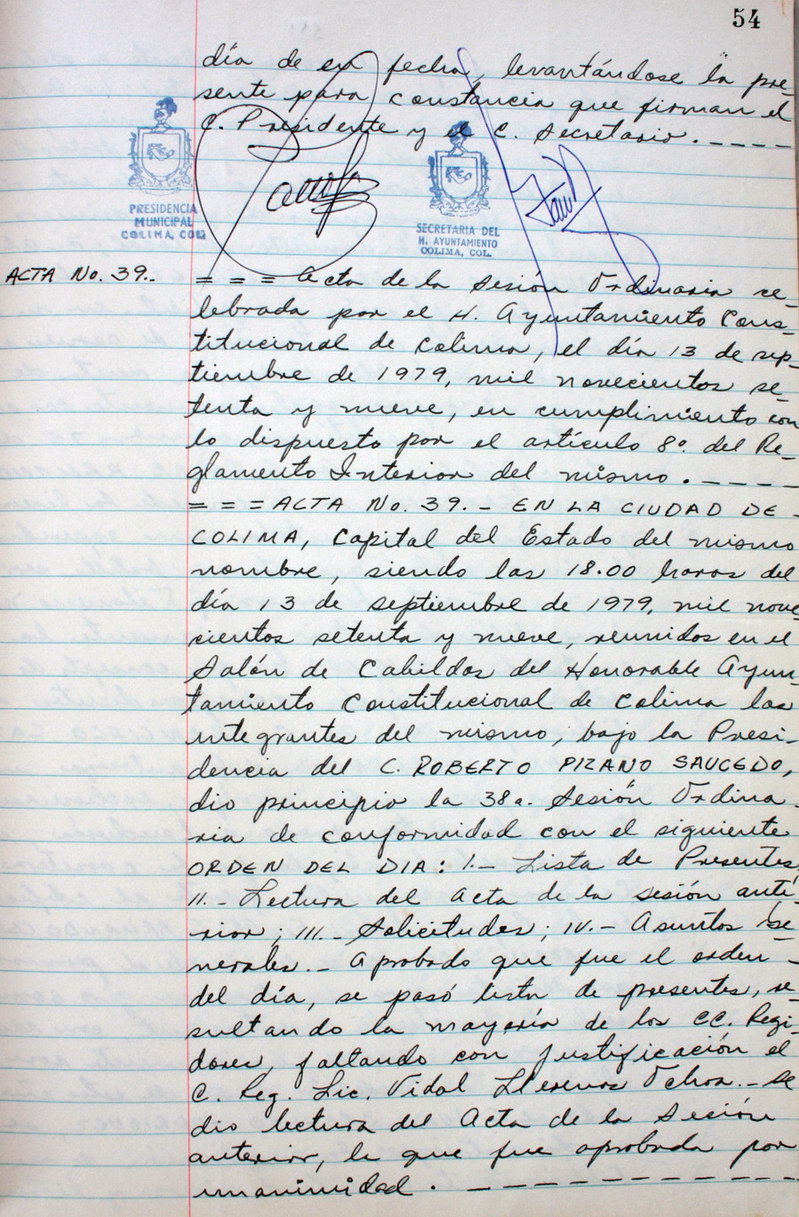 54
día de su fecha, levantándose la pre-
sente para constancia que firman el
C. Presidente y el C. Secretario. - - - -
PRESIDENCIA
MUNICIPAL
COLIMA, COL.
SECRETARIA DEL
H. AYUNTAMIENTO
COLIMA, COL.
ACTA No. 39.-
= = = Acta de la Sesión Ordinaria ce-
lebrada por el H. Ayuntamiento Cons-
titucional de Colima, el día 13 de sep-
tiembre de 1979, mil novecientos se-
tenta y nueve, en cumplimiento con
lo dispuesto por el artículo 8º. del Re-
glamento Interior del mismo. - - - -
= = = ACTA No. 39.- EN LA CIUDAD DE -
COLIMA, Capital del Estado del mismo
nombre, siendo las 18.00 horas del
día 13 de septiembre de 1979, mil nove-
cientos setenta y nueve, reunidos en el
Salón de Cabildos del Honorable Ayun-
tamiento Constitucional de Colima los
integrantes del mismo, bajo la Presi-
dencia del C. ROBERTO PIZANO SAUCEDO,
dio principio la 38a. Sesión Ordina-
ria de conformidad con el siguiente
ORDEN DEL DIA: I.- Lista de Presentes,
II.- Lectura del Acta de la sesión ante-
rior; III.- Solicitudes; IV.- Asuntos Ge-
nerales.- Aprobado que fue el orden -
del día, se pasó lista de presentes, re-
sultando la mayoría de los CC. Regi-
dores, faltando con justificación el
C. Reg. Lic. Vidal Llerenas Ochoa.- Se
dio lectura del Acta de la Sesión
anterior, la que fue aprobada por
unanimidad. - - - - - - - - - -